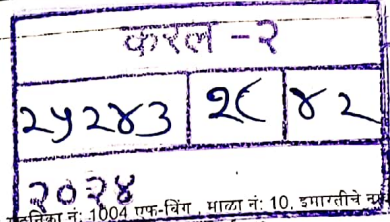 करल - २
२५२४३ २८ ४२
२०२४
सदनिका नं: 1004 एफ-विंग , माळा नं: 10, इमारतीचे